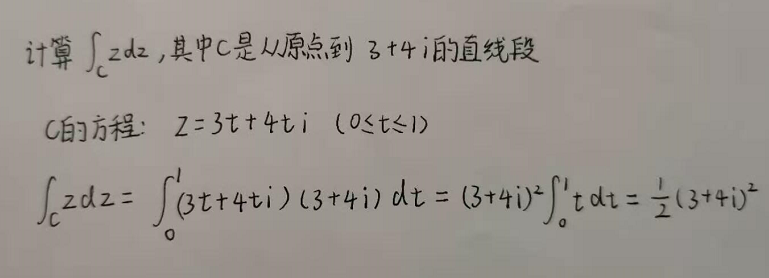 计算 ∫_C zdz ,其中C是从原点到 3+4i的直线段
C的方程: z=3t+4ti (0≤t≤1)
∫_C zdz = ∫_0^1 (3t+4ti)(3+4i) dt = (3+4i)² ∫_0^1 t dt = 1/2 (3+4i)²